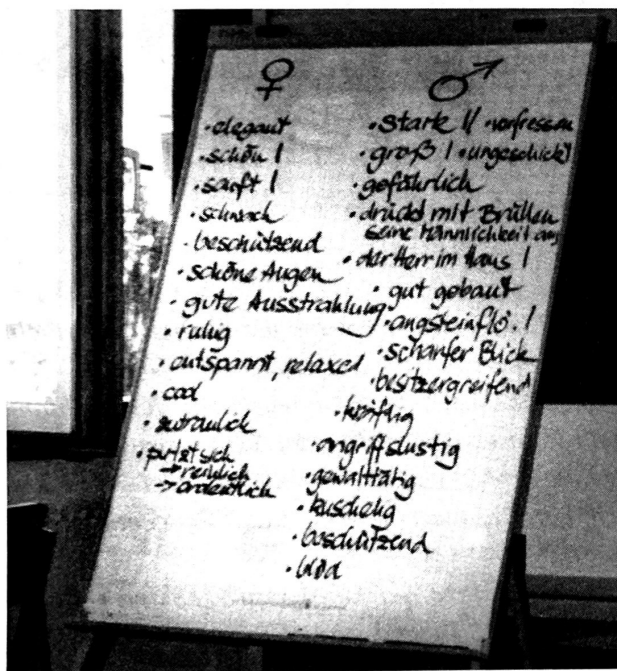 ♀
• elegant
• schön |
• sanft |
• schwach
beschützend
• schöne Augen
• gute Ausstrahlung
• ruhig
• entspannt, relaxed
• cool
• zutraulich
• putzt sich
→ reinlich
→ ordentlich
♂
• stark || • verfressen
• groß | • ungeschickt
• gefährlich
• drückt mit Brüllen
seine Männlichkeit aus
• der Herr im Haus |
• gut gebaut
• angsteinflö. |
• scharfer Blick
• besitzergreifend
• kräftig
• angriffslustig
• gewalttätig
• kuschelig
• beschützend
• blöd